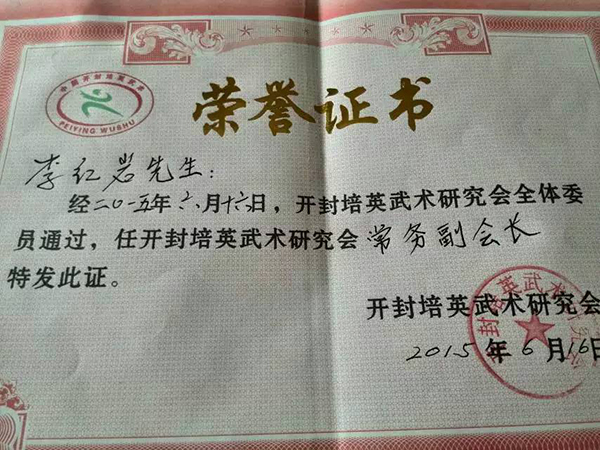 荣誉证书
中国开封培英武术
PEIYING WUSHU
李红岩先生:
经二〇一五年六月十六日,开封培英武术研究会全体委
员通过,任开封培英武术研究会常务副会长
特发此证。
开封培英武术研究会
2015年6月16日
封培英武术